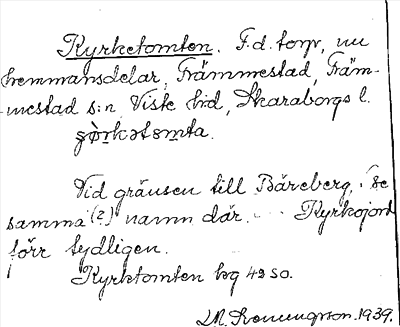 Kyrketomten. F.d. torp, nu
hemmansdelar, Främmestad, Främ-
mestad s:n Viste hd, Skaraborgs l.
Vid gränsen till Bäreberg, se
samma (?) namn där. Kyrkojord
förr tydligen.
Kyrketomten kg 42 SO.
1939.